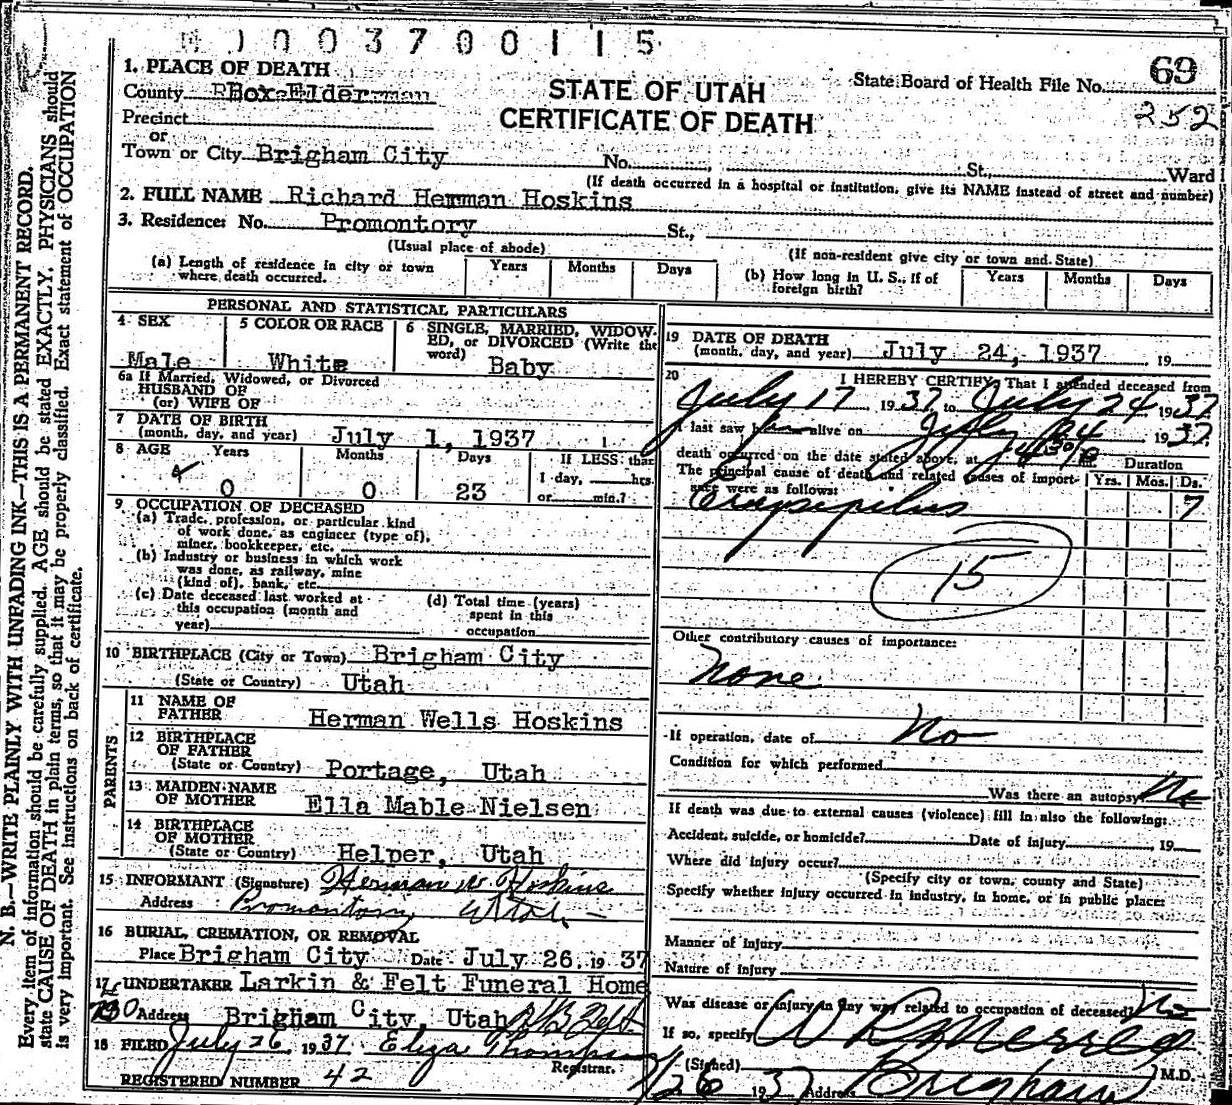 003700115
69
1. PLACE OF DEATH
State Board of Health File No.
County Box Elder
STATE OF UTAH
252
Precinct
CERTIFICATE OF DEATH
or
Town or City Brigham City No. , St., Ward
(If death occurred in a hospital or institution, give its NAME instead of street and number)
2. FULL NAME Richard Herman Hoskins
3. Residence: No. Promontory St.,
(Usual place of abode) (If non-resident give city or town and State)
(a) Length of residence in city or town where death occurred. Years Months Days
(b) How long in U. S., if of foreign birth? Years Months Days
PERSONAL AND STATISTICAL PARTICULARS
4 SEX
Male
5 COLOR OR RACE
White
6 SINGLE, MARRIED, WIDOW-
ED, or DIVORCED (Write the
word) Baby
6a If Married, Widowed, or Divorced
HUSBAND OF
(or) WIFE OF
7 DATE OF BIRTH
(month, day, and year) July 1, 1937
8 AGE Years Months Days If LESS than
1 day, hrs.
0 0 23 or min.?
9 OCCUPATION OF DECEASED
(a) Trade, profession, or particular kind
of work done, as engineer (type of),
miner, bookkeeper, etc.
(b) Industry or business in which work
was done, as railway, mine
(kind of), bank, etc.
(c) Date deceased last worked at
this occupation (month and
year)
(d) Total time (years)
spent in this
occupation
10 BIRTHPLACE (City or Town) Brigham City
(State or Country) Utah
PARENTS
11 NAME OF
FATHER Herman Wells Hoskins
12 BIRTHPLACE
OF FATHER
(State or Country) Portage, Utah
13 MAIDEN NAME
OF MOTHER Ella Mable Nielsen
14 BIRTHPLACE
OF MOTHER
(State or Country) Helper, Utah
15 INFORMANT (Signature) Herman W Hoskins
Address Promontory Utah
16 BURIAL, CREMATION, OR REMOVAL
Place Brigham City Date July 26, 1937
17 UNDERTAKER Larkin & Felt Funeral Home
Address Brigham City, Utah
18 FILED July 26 1937 Eliza Thompson
Registrar.
REGISTERED NUMBER 42
19 DATE OF DEATH
(month, day, and year) July 24, 1937 19
20 I HEREBY CERTIFY, That I attended deceased from
July 17 1937 to July 24 1937
I last saw alive on July 24 1937
death occurred on the date stated above, at m. Duration
The principal cause of death and related causes of import- Yrs. Mos. Ds.
ance were as follows:
Erysipelas 7
15
Other contributory causes of importance:
None
If operation, date of No
Condition for which performed
Was there an autopsy No
If death was due to external causes (violence) fill in also the following:
Accident, suicide, or homicide? Date of Injury 19
Where did injury occur?
(Specify city or town, county and State)
Specify whether injury occurred in industry, in home, or in public place:
Manner of Injury
Nature of Injury
Was disease or injury in any way related to occupation of deceased? No
If so, specify
(Signed) Merrell M.D.
7/26 1937 Address Brigham
N. B.—WRITE PLAINLY WITH UNFADING INK—THIS IS A PERMANENT RECORD.
Every item of information should be carefully supplied. AGE should be stated EXACTLY. PHYSICIANS should
state CAUSE OF DEATH in plain terms, so that it may be properly classified. Exact statement of OCCUPATION
is very important. See instructions on back of certificate.